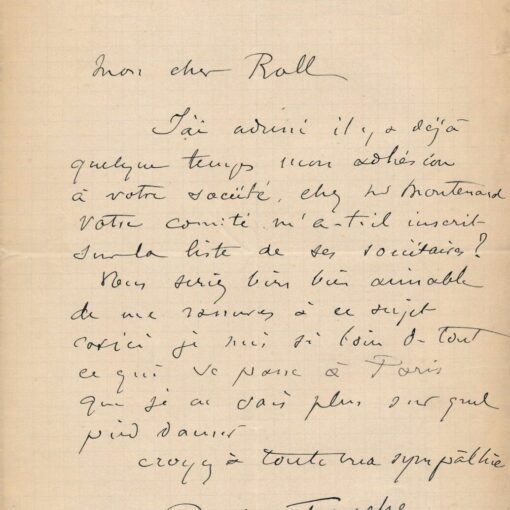 Mon cher Roll
J'ai adressé il y a déjà
quelque temps mon adhésion
à votre société, chez Mr Montenard
Votre comité m'a-t-il inscrit
sur la liste de ses sociétaires?
Vous seriez bien bien aimable
de me rassurer à ce sujet
car ici je suis si loin de tout
ce qui se passe à Paris
que je ne sais plus sur quel
pied danser
croyez à toute ma sympathie